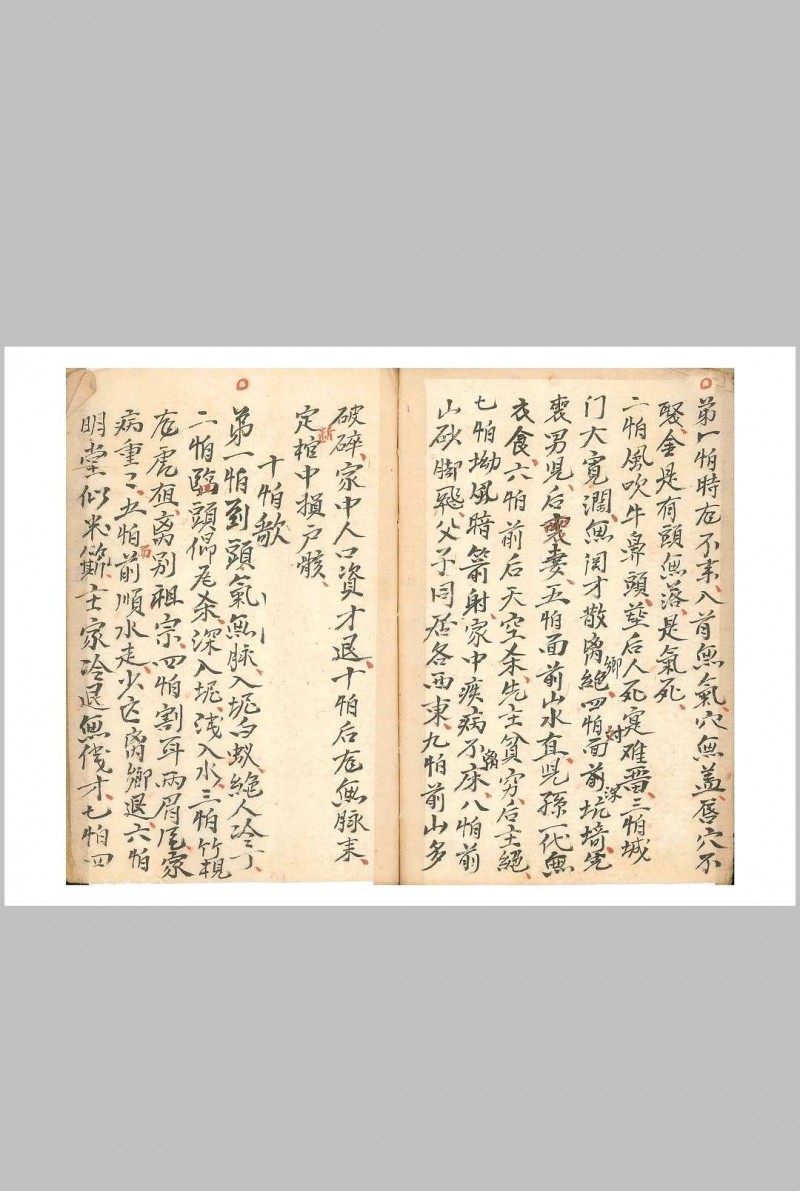 第一怕時龙不来、入首無氣、穴無盖、唇穴不
聚金是有頭無落、是氣死、
二怕風吹牛鼻頭、塟后人死寔难畱三怕城
门大寛濶、無関才散离鄉絕、四怕面前坑埼、先
丧男児、后丧妻、五怕面前山水直、児孫一代無
衣食、六怕前后天空杀、先主貧穷、后主絕、
七怕坳風暗箭射、家中疾病不离床八怕前
山砂脚飛、父子同居各西東、九怕前山多
破碎、家中人口資才退、十怕后龙無脉来、
断定棺中損尸骸、
十怕歌
第一怕到頭氣無脉、入坭白蚁絕人冷丁、
二怕臨頭仰瓦杀、深入坭、浅入水、三怕竹梘
龙虎、离别祖宗、四怕割耳两眉尾、家
病重〻、五怕前順水走、少亡离鄉退、六怕
明堂似米篩、主家冷退無伐才、七怕四